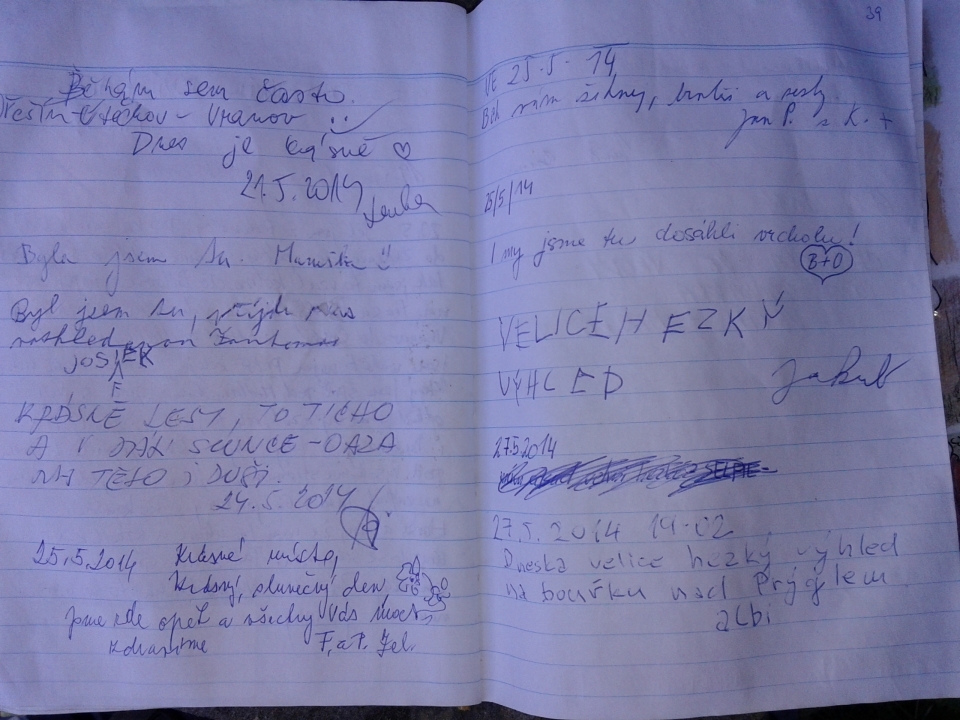 Běhám sem často.
Útěchov - Vranov
Dnes je krásně ♡
21.5.2014
Lenka
Byla jsem tu.
Byl jsem tu, přijdu zas
JOSÍFEK
KRÁSNÉ LESY, TO TICHO
A V DÁLI SLUNCE - OÁZA
NA TĚLO I DUŠI.
24.5.2014
25.5.2014 Krásné místo,
Krásný, slunečný den,
jsme zde opět a všechny Vás moc
zdravíme F. a P.
39
NE 25.5. 14
Buď s vámi, bratři a sestry
Jan P. z K. +
25/5/14
I my jsme tu dosáhli vrcholu!
B+O
VELICE HEZKÝ
VÝHLED Jakub
27.5.2014
27.5.2014 19:02
Dneska velice hezký výhled
na bouřku nad Prýglem
albi